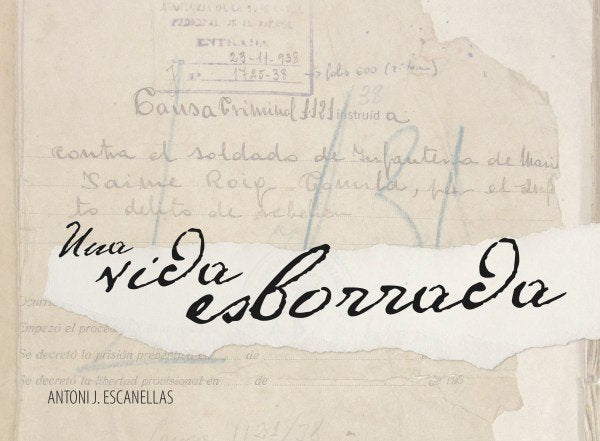 ENTRADA
23-11-938
1725-38 → folio 600 (2º tomo)
38
Causa Criminal 1121 instruida
contra el soldado de Infantería de Mari
Jaime Roig
to delito de rebelión
Una
vida
esborrada
Ocurri
Empezó el proced
Se decretó la prisión preventiva en de
Se decretó la libertad provisional en de de 195
ANTONI J. ESCANELLAS
1121/38